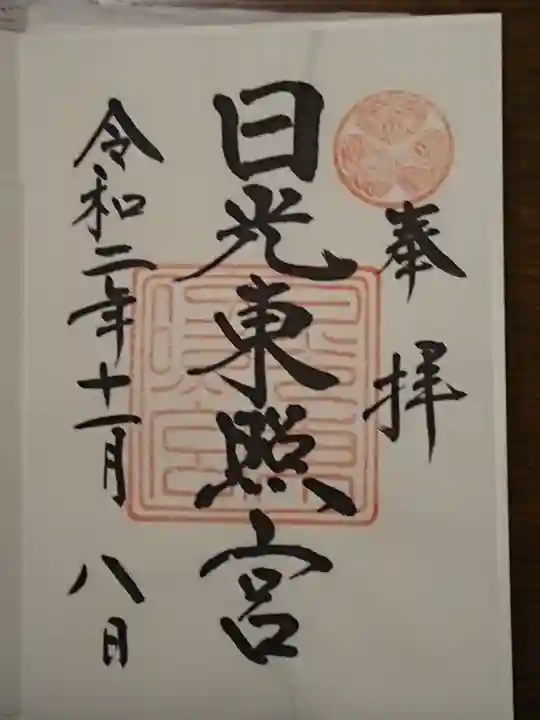 奉拝
日光東照宮
令和二年十一月八日